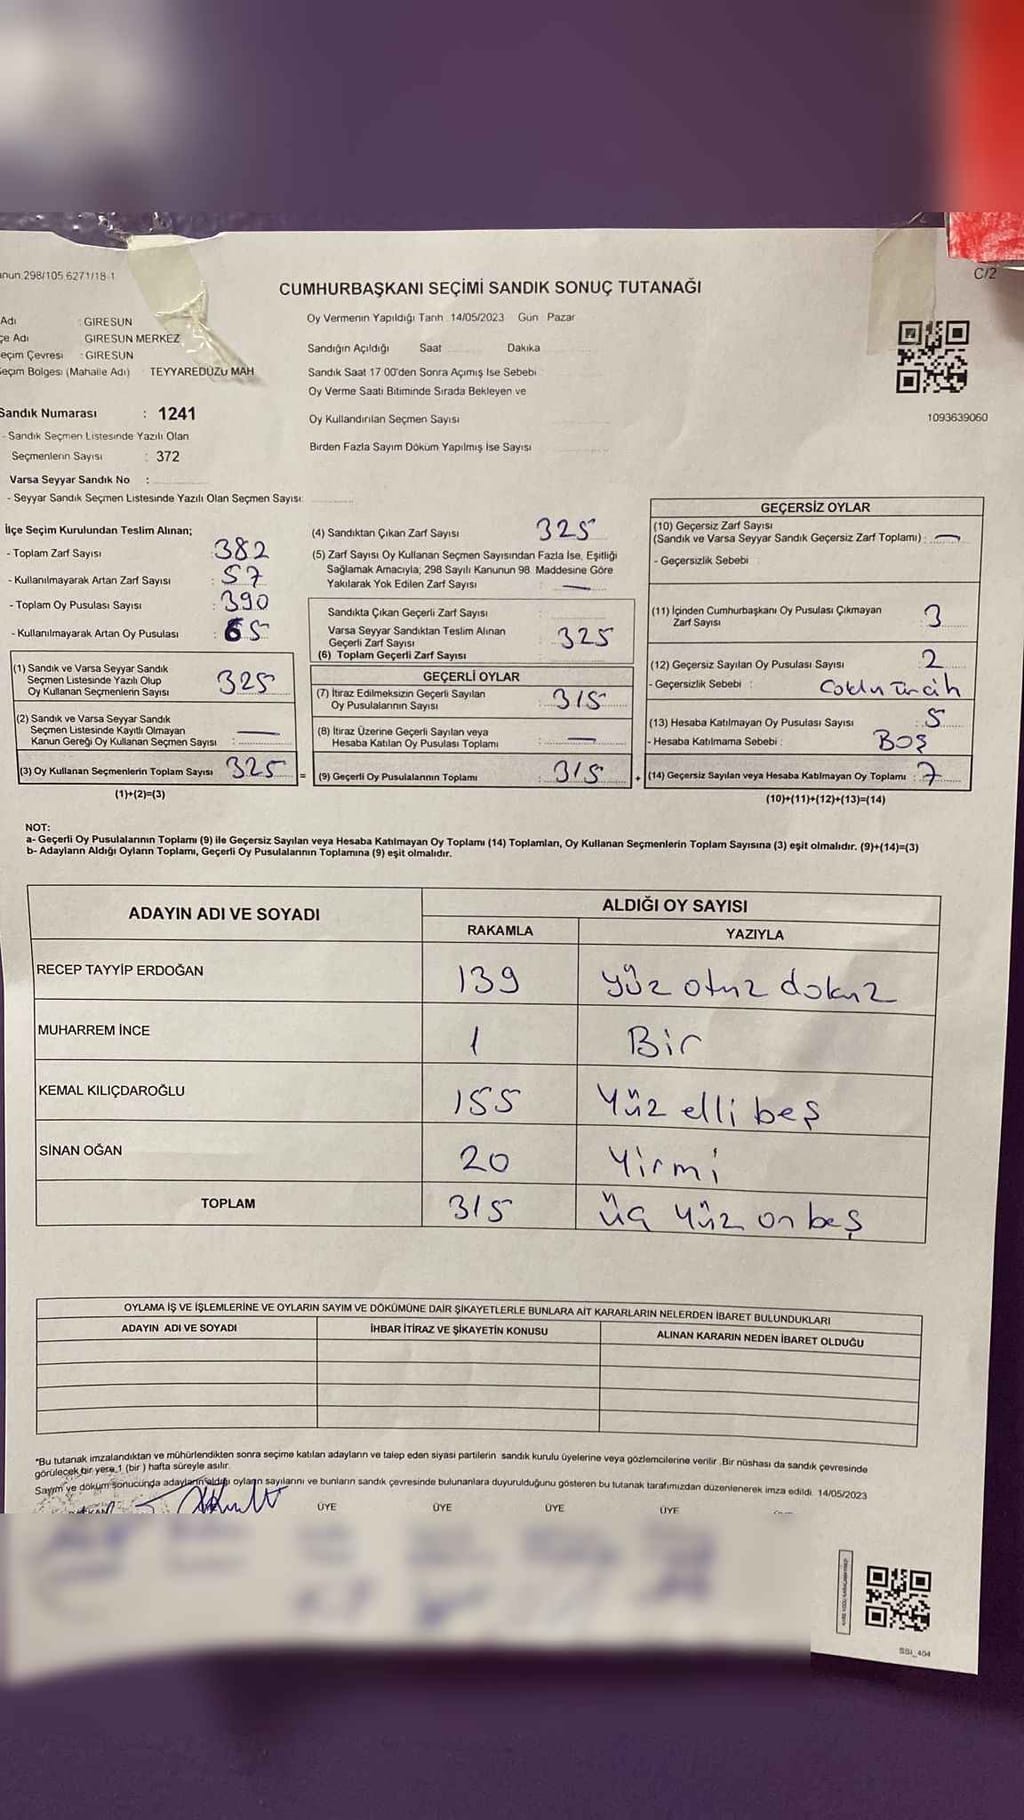 anun.298/105.6271/18-1
C/2
CUMHURBAŞKANI SEÇİMİ SANDIK SONUÇ TUTANAĞI
Adı : GİRESUN
çe Adı GİRESUN MERKEZ
eçim Çevresi : GİRESUN
Seçim Bölgesi (Mahalle Adı) TEYYAREDÜZÜ MAH
Oy Vermenin Yapıldığı Tarih 14/05/2023 Gün Pazar
Sandığın Açıldığı Saat Dakika
Sandık Saat 17 00'den Sonra Açımış İse Sebebi
Oy Verme Saati Bitiminde Sırada Bekleyen ve
Oy Kullandırılan Seçmen Sayısı
Birden Fazla Sayım Döküm Yapılmış İse Sayısı
1093639060
Sandık Numarası : 1241
- Sandık Seçmen Listesinde Yazılı Olan
Seçmenlerin Sayısı : 372
Varsa Seyyar Sandık No :
- Seyyar Sandık Seçmen Listesinde Yazılı Olan Seçmen Sayısı:
İlçe Seçim Kurulundan Teslim Alınan;
- Toplam Zarf Sayısı : 382
- Kullanılmayarak Artan Zarf Sayısı : 57
- Toplam Oy Pusulası Sayısı : 390
- Kullanılmayarak Artan Oy Pusulası : 65
(1) Sandık ve Varsa Seyyar Sandık
Seçmen Listesinde Yazılı Olup
Oy Kullanan Seçmenlerin Sayısı : 325
(2) Sandık ve Varsa Seyyar Sandık
Seçmen Listesinde Kayıtlı Olmayan
Kanun Gereği Oy Kullanan Seçmen Sayısı : —
(3) Oy Kullanan Seçmenlerin Toplam Sayısı : 325
(1)+(2)=(3)
(4) Sandıktan Çıkan Zarf Sayısı 325
(5) Zarf Sayısı Oy Kullanan Seçmen Sayısından Fazla İse, Eşitliği
Sağlamak Amacıyla, 298 Sayılı Kanunun 98. Maddesine Göre
Yakılarak Yok Edilen Zarf Sayısı —
Sandıkta Çıkan Geçerli Zarf Sayısı
Varsa Seyyar Sandıktan Teslim Alınan
Geçerli Zarf Sayısı
(6) Toplam Geçerli Zarf Sayısı 325
GEÇERLİ OYLAR
(7) İtiraz Edilmeksizin Geçerli Sayılan
Oy Pusulalarının Sayısı : 315
(8) İtiraz Üzerine Geçerli Sayılan veya
Hesaba Katılan Oy Pusulası Toplamı : —
= (9) Geçerli Oy Pusulalarının Toplamı : 315 +
GEÇERSİZ OYLAR
(10) Geçersiz Zarf Sayısı
(Sandık ve Varsa Seyyar Sandık Geçersiz Zarf Toplamı) : —
- Geçersizlik Sebebi
(11) İçinden Cumhurbaşkanı Oy Pusulası Çıkmayan
Zarf Sayısı 3
(12) Geçersiz Sayılan Oy Pusulası Sayısı : 2
- Geçersizlik Sebebi :
(13) Hesaba Katılmayan Oy Pusulası Sayısı : 5
- Hesaba Katılmama Sebebi : BOŞ
(14) Geçersiz Sayılan veya Hesaba Katılmayan Oy Toplamı : 7
(10)+(11)+(12)+(13)=(14)
NOT:
a- Geçerli Oy Pusulalarının Toplamı (9) ile Geçersiz Sayılan veya Hesaba Katılmayan Oy Toplamı (14) Toplamları, Oy Kullanan Seçmenlerin Toplam Sayısına (3) eşit olmalıdır. (9)+(14)=(3)
b- Adayların Aldığı Oyların Toplamı, Geçerli Oy Pusulalarının Toplamına (9) eşit olmalıdır.
ADAYIN ADI VE SOYADI ALDIĞI OY SAYISI
RAKAMLA YAZIYLA
RECEP TAYYİP ERDOĞAN 139 yüz otuz dokuz
MUHARREM İNCE 1 Bir
KEMAL KILIÇDAROĞLU 155 Yüz elli beş
SİNAN OĞAN 20 Yirmi
TOPLAM 315 üç yüz on beş
OYLAMA İŞ VE İŞLEMLERİNE VE OYLARIN SAYIM VE DÖKÜMÜNE DAİR ŞİKAYETLERLE BUNLARA AİT KARARLARIN NELERDEN İBARET BULUNDUKLARI
ADAYIN ADI VE SOYADI İHBAR İTİRAZ VE ŞİKAYETİN KONUSU ALINAN KARARIN NEDEN İBARET OLDUĞU
"Bu tutanak imzalandıktan ve mühürlendikten sonra seçime katılan adayların ve talep eden siyasi partilerin sandık kurulu üyelerine veya gözlemcilerine verilir .Bir nüshası da sandık çevresinde
görülecek bir yere 1 (bir ) hafta süreyle asılır.
Sayım ve döküm sonucunda adayların aldığı oyların sayılarını ve bunların sandık çevresinde bulunanlara duyurulduğunu gösteren bu tutanak tarafımızdan düzenlenerek imza edildi. 14/05/2023
ÜYE ÜYE ÜYE ÜYE
SSI_404